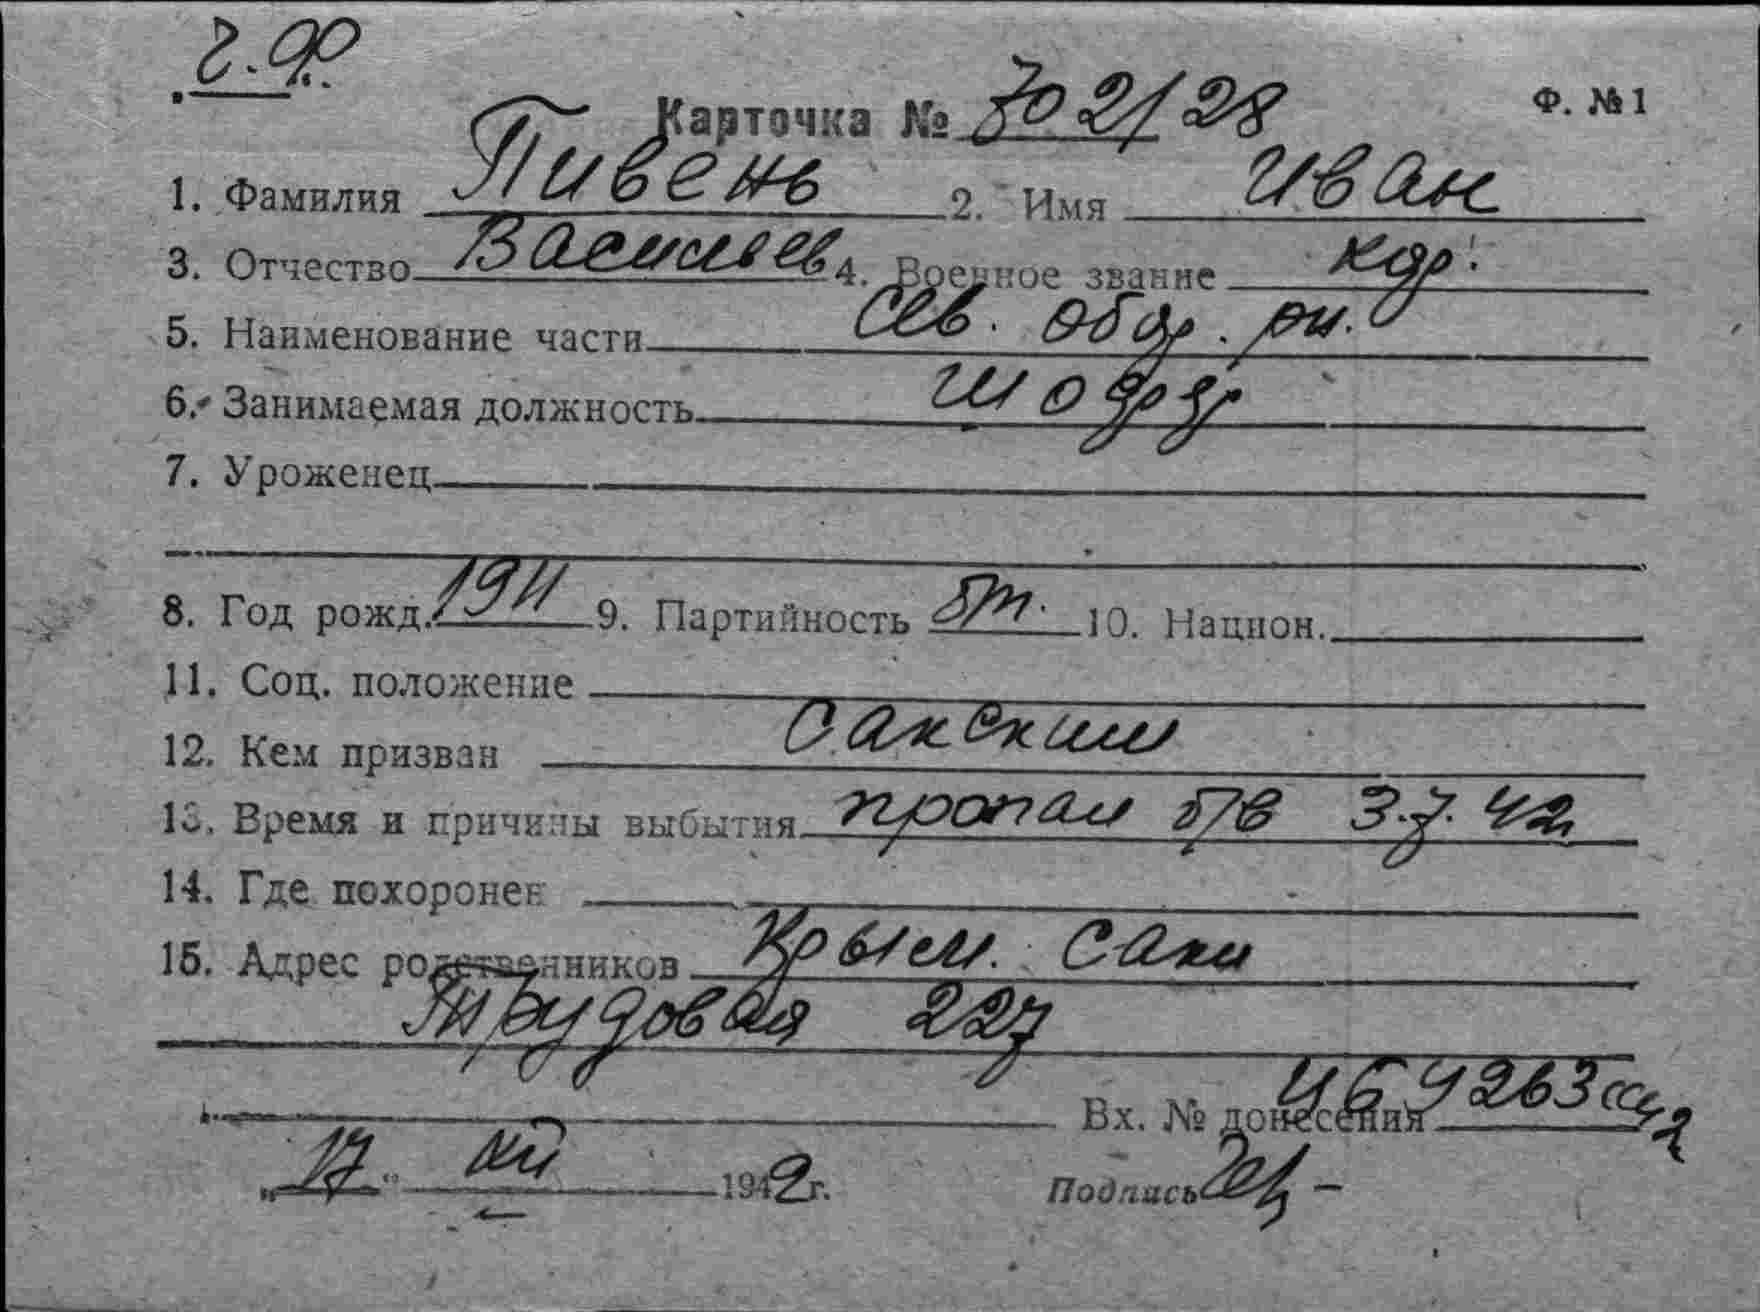 Ч.Ф.
Карточка № 702/28 Ф. №1
1. Фамилия Пивень 2. Имя Иван
3. Отчество Васильев 4. Военное звание кдр.
5. Наименование части Сев. обор. рн.
6. Занимаемая должность шофер
7. Уроженец
8. Год рожд. 1911 9. Партийность бп. 10. Национ.
11. Соц. положение
12. Кем призван Сакским
13. Время и причины выбытия пропал б/в 3.7.42
14. Где похоронен
15. Адрес родственников Крым. Саки
Трудовая 227
Вх. № донесения
„17“ 1942г.
Подпись